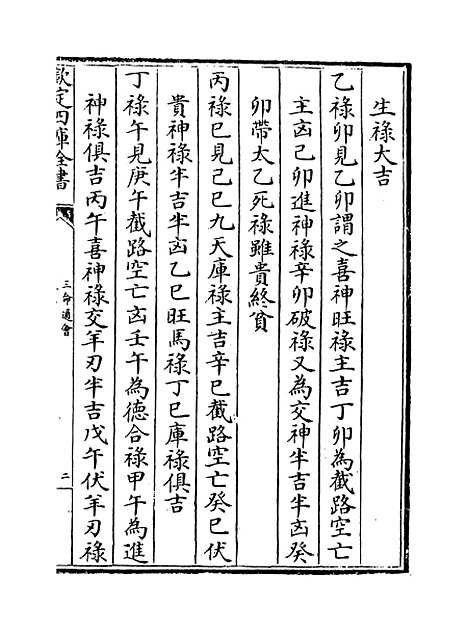 生祿大吉
乙祿卯見乙卯謂之喜神旺祿主吉丁卯為截路空亡
主㐫己卯進神祿辛卯破祿又為交神半吉半㐫癸
卯帶太乙死祿雖貴終貧
丙祿巳見己巳九天庫祿主吉辛巳截路空亡癸巳伏
貴神祿半吉半㐫乙巳旺馬祿丁巳庫祿俱吉
丁祿午見庚午截路空亡㐫壬午為德合祿甲午為進
神祿俱吉丙午喜神祿交羊刃半吉戊午伏羊刃祿
欽定四庫全書
三命通會
二